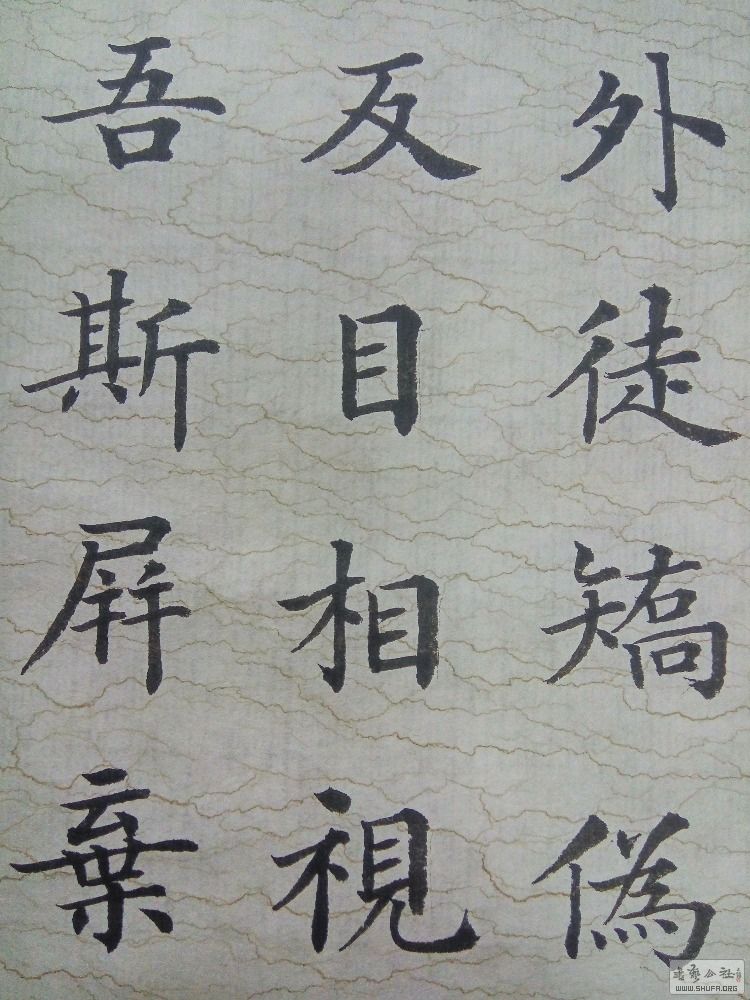 外徒矯偽
反目相視
吾斯屏棄
書藝公社
WWW.SHUFA.ORG